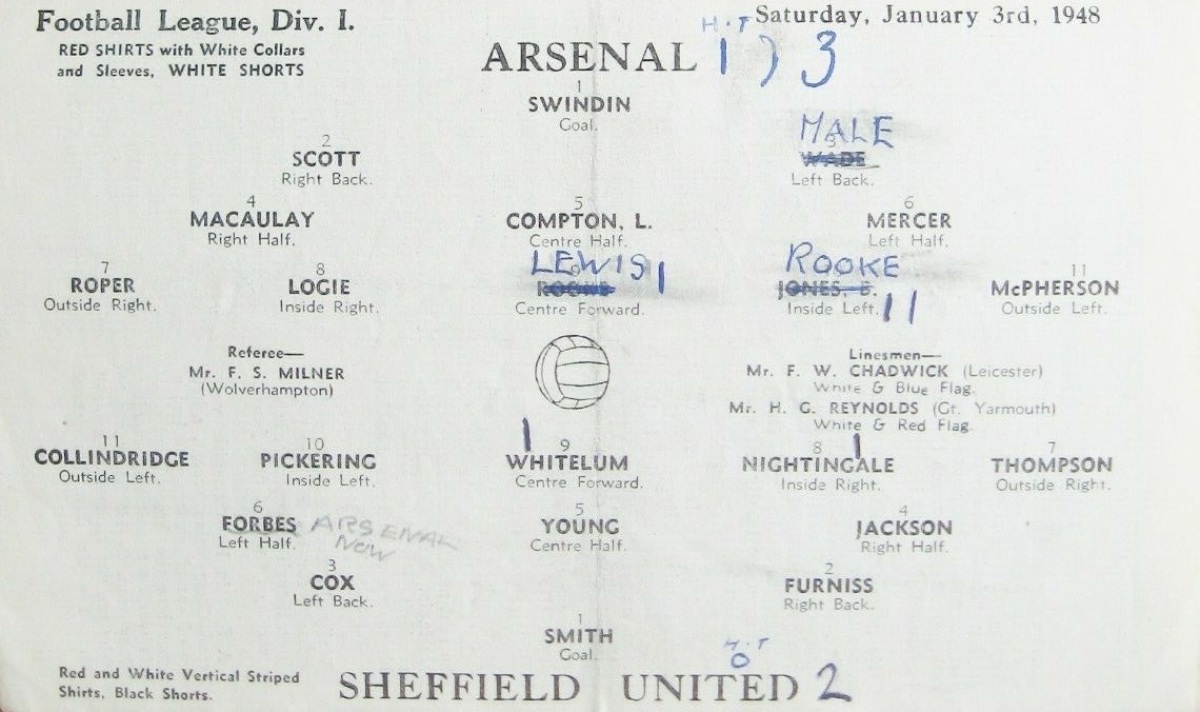 Football League, Div. I.
Saturday, January 3rd, 1948
RED SHIRTS with White Collars
and Sleeves, WHITE SHORTS
H.T
ARSENAL 1 ) 3
1
SWINDIN
Goal.
2
SCOTT
Right Back.
MALE
3
WADE
Left Back.
4
MACAULAY
Right Half.
5
COMPTON, L.
Centre Half.
6
MERCER
Left Half.
7
ROPER
Outside Right.
8
LOGIE
Inside Right.
LEWIS 1
9
ROOKE
Centre Forward.
ROOKE
JONES, B.
Inside Left. 11
11
McPHERSON
Outside Left.
Referee—
Mr. F. S. MILNER
(Wolverhampton)
Linesmen—
Mr. F. W. CHADWICK (Leicester)
White & Blue Flag.
Mr. H. G. REYNOLDS (Gt. Yarmouth)
White & Red Flag.
11
COLLINDRIDGE
Outside Left.
10
PICKERING
Inside Left.
1 9
WHITELUM
Centre Forward.
8 1
NIGHTINGALE
Inside Right.
7
THOMPSON
Outside Right.
6
FORBES ARSENAL
NOW
Left Half.
5
YOUNG
Centre Half.
4
JACKSON
Right Half.
3
COX
Left Back.
2
FURNISS
Right Back.
1
SMITH
Goal.
Red and White Vertical Striped
Shirts, Black Shorts.
H.T
0
SHEFFIELD UNITED 2